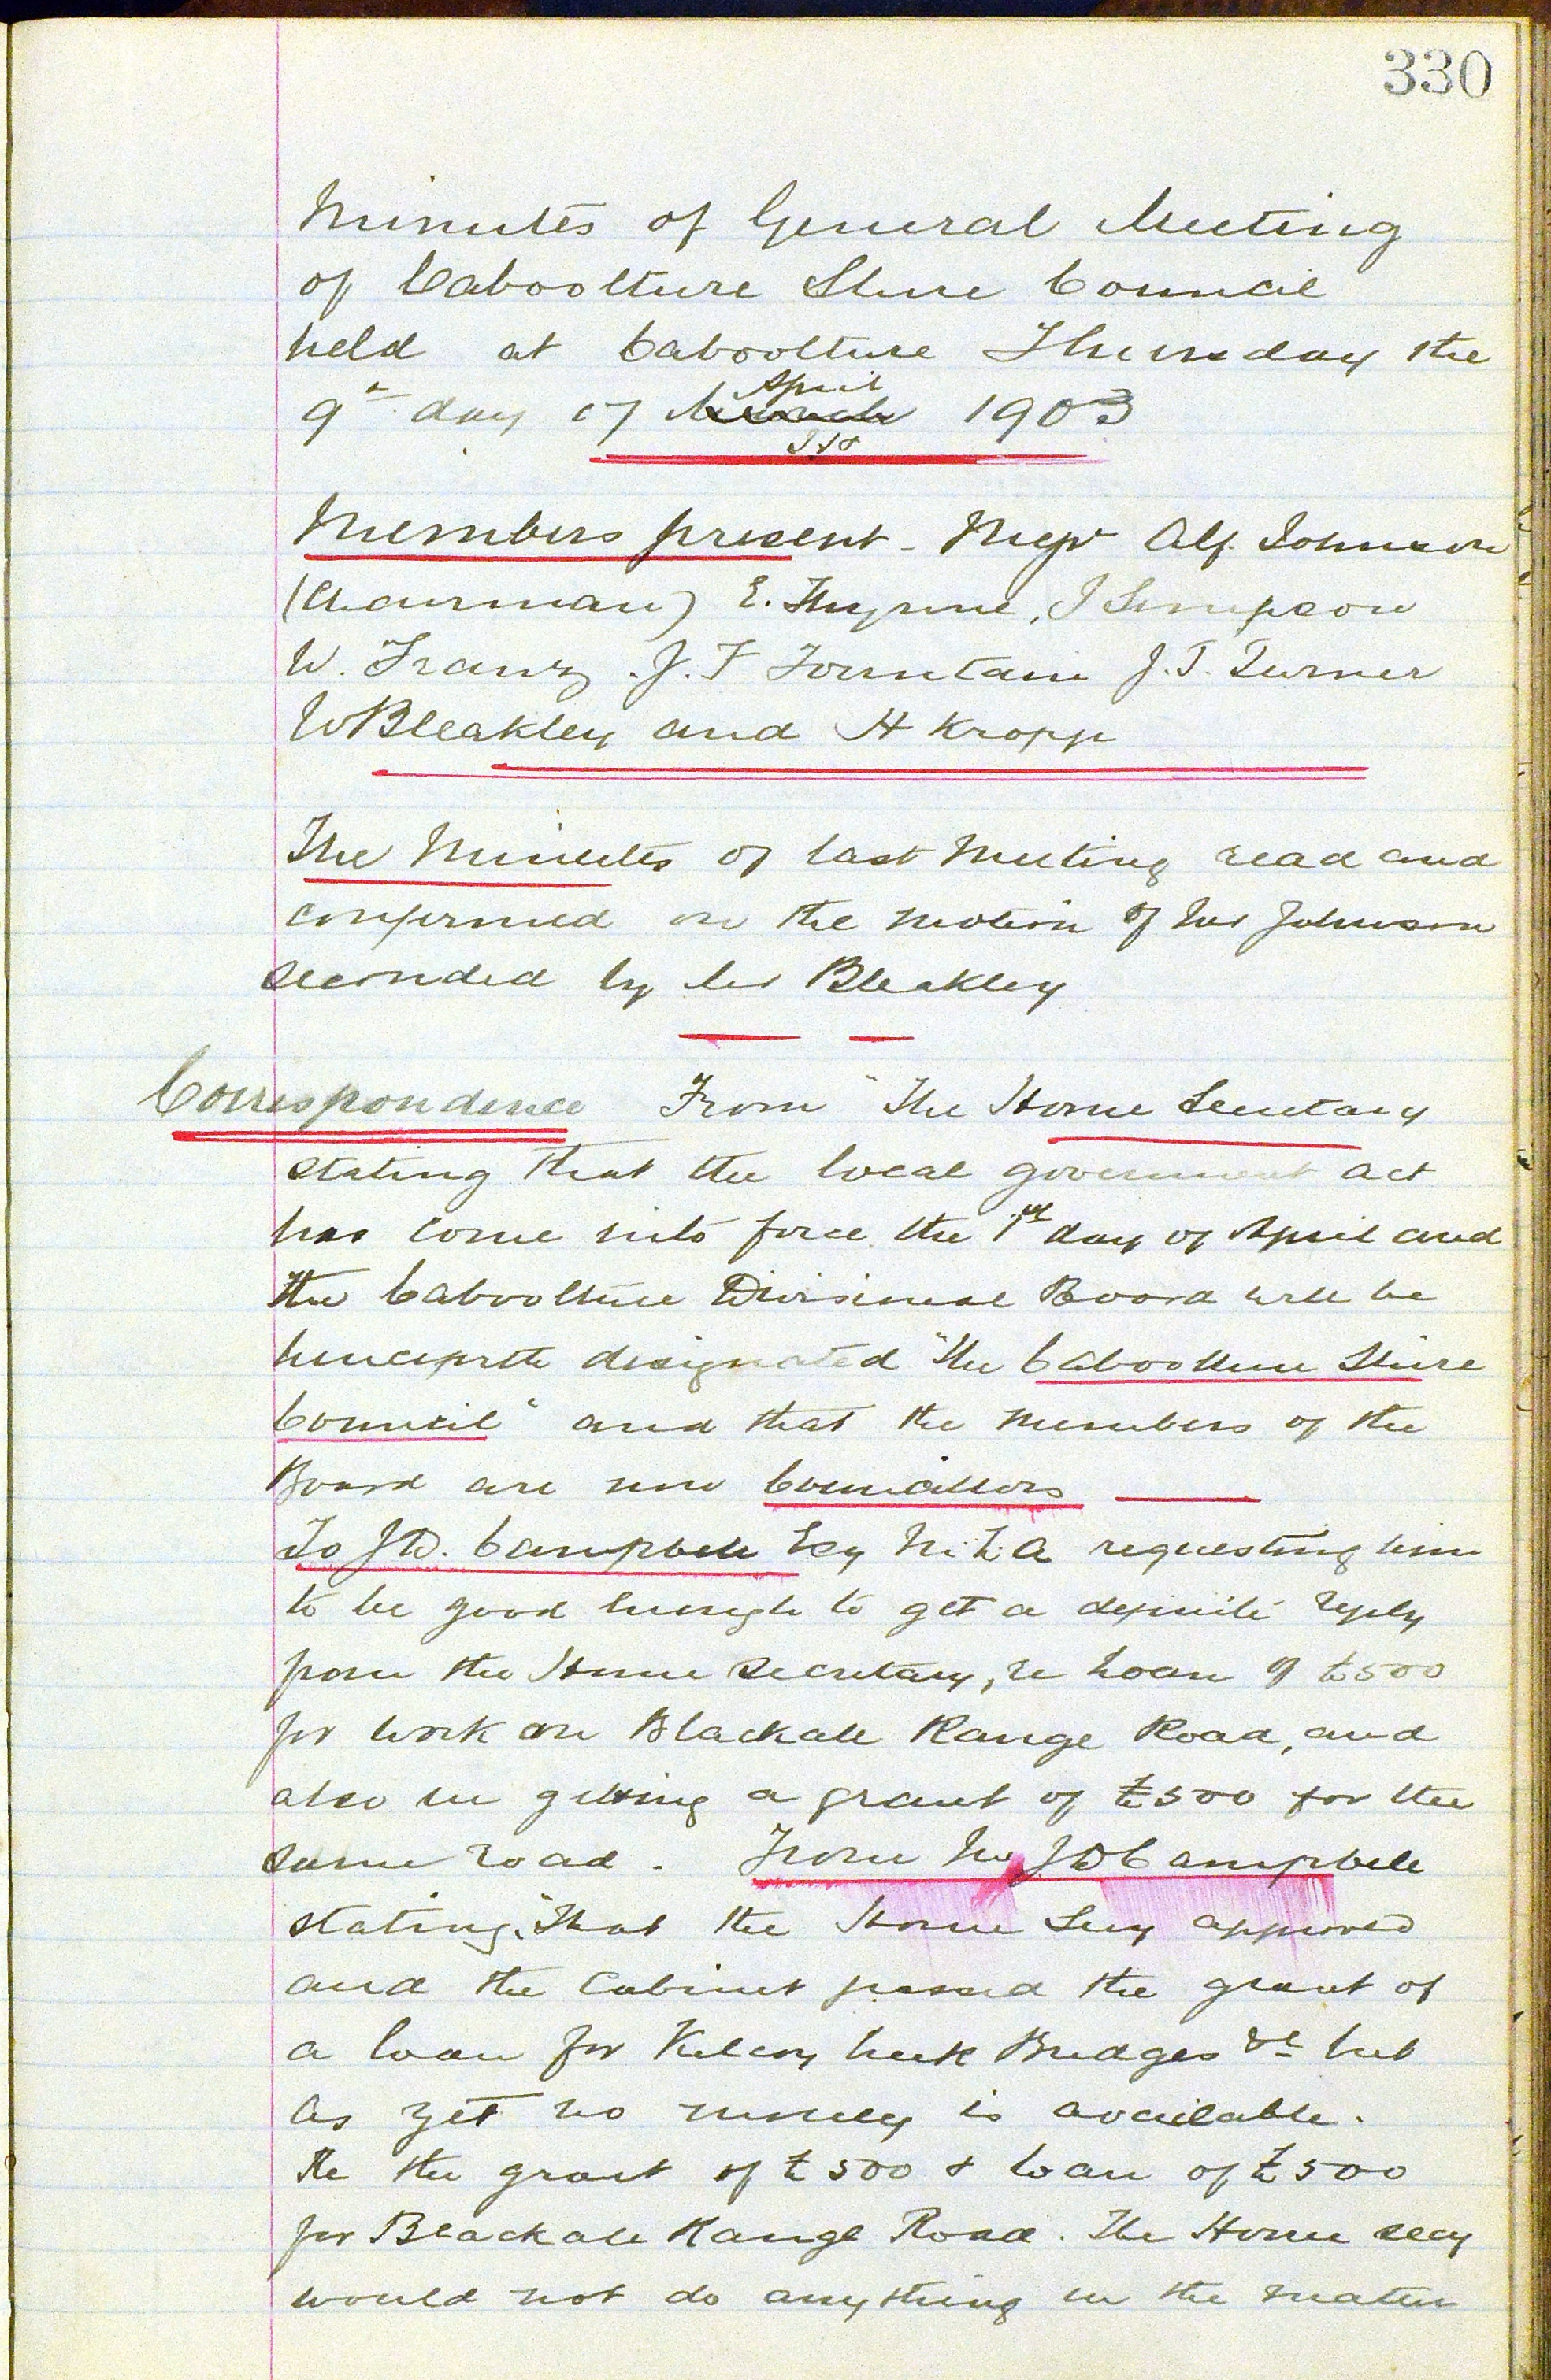 330
Minutes of General Meeting
of Caboolture Shire Council
held at Caboolture Thursday the
9th day of March April 1903
Members present - Messrs Alf. Johnson
(Chairman) E. Thynne, J Simpson
W. Franz, J. F Fountain J. T. Turner
W Bleakley and H Kropp
The Minutes of last Meeting read and
confirmed on the motion of Mr Johnson
seconded by Mr Bleakley
Correspondence From "The Home Secretary
stating that the local government act
has come into force the 1st day of April and
the Caboolture Divisional Board will be
henceforth designated "The Caboolture Shire
Council" and that the members of the
Board are now Councillors
To J D. Campbell Esq M.L.A requesting him
to be good enough to get a definite reply
from the Home Secretary, re Loan of £500
for work on Blackall Range Road, and
also in getting a grant of £500 for the
same road. From Mr J D Campbell
stating, "That the Home Secy approved
and the Cabinet passed the grant of
a loan for Kilcoy Creek Bridges &c but
as yet no money is available.
Re the grant of £500 & loan of £500
for Blackall Range Road. The Home secy
would not do anything in the matter